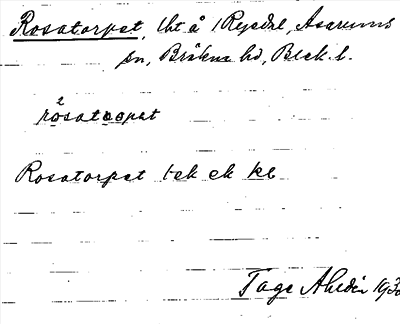 Rosatorpet, lht å 1 Ryedal, Asarums
sn, Bräkne hd, Blek. l.
rosatorpet
Rosatorpet 1 ek ek kb
Tage Ahldén 193